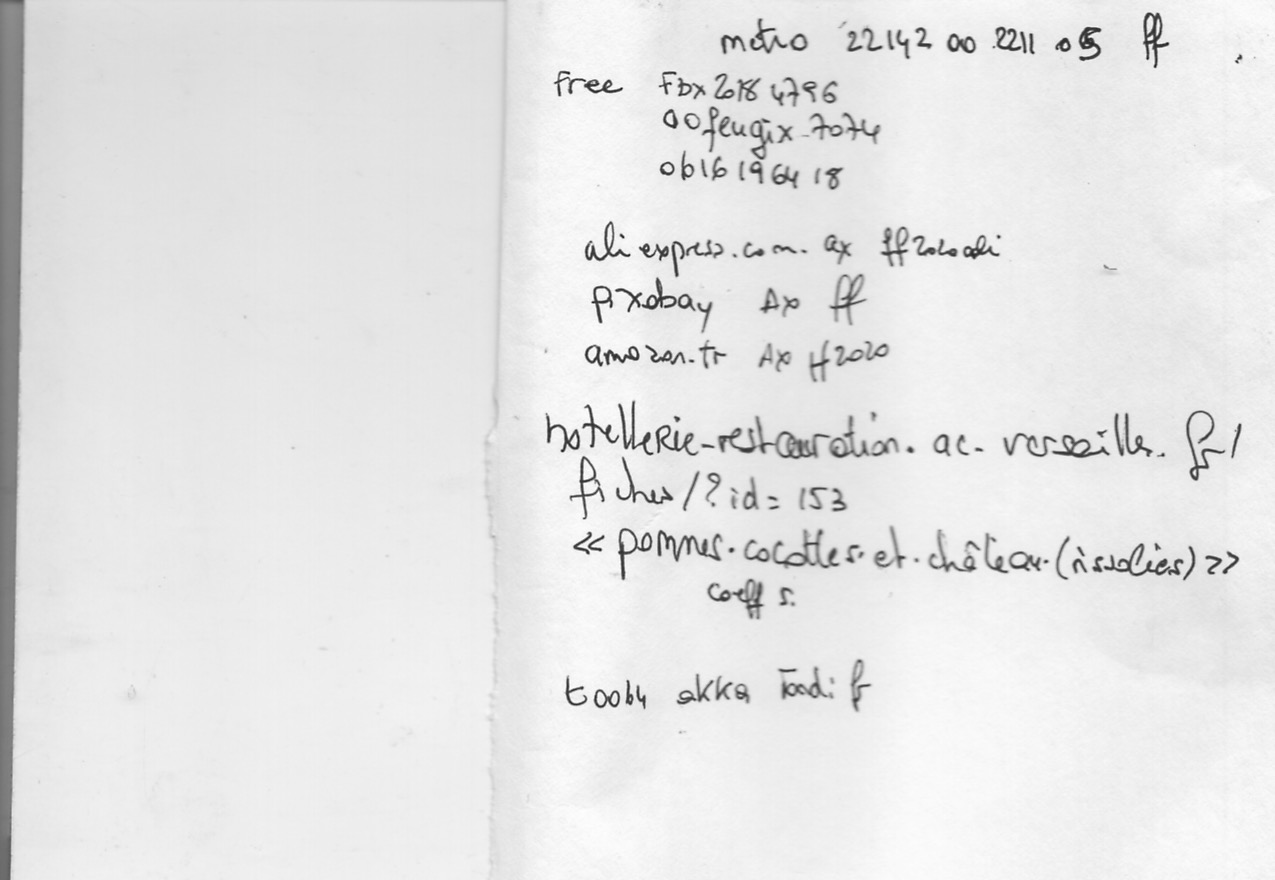 metro 22142 00 2211 05 ff
free fbx2018 4796
00feugix-7074
0616196418
aliexpress.com. ax ff2020ali
pixabay Ax ff
amazon.fr Ax ff2020
hotellerie-restauration.ac-versailles.fr/
fiches/?id=153
« pommes.cocottes.et.château.(rissolées) »
coeff 5.
akka